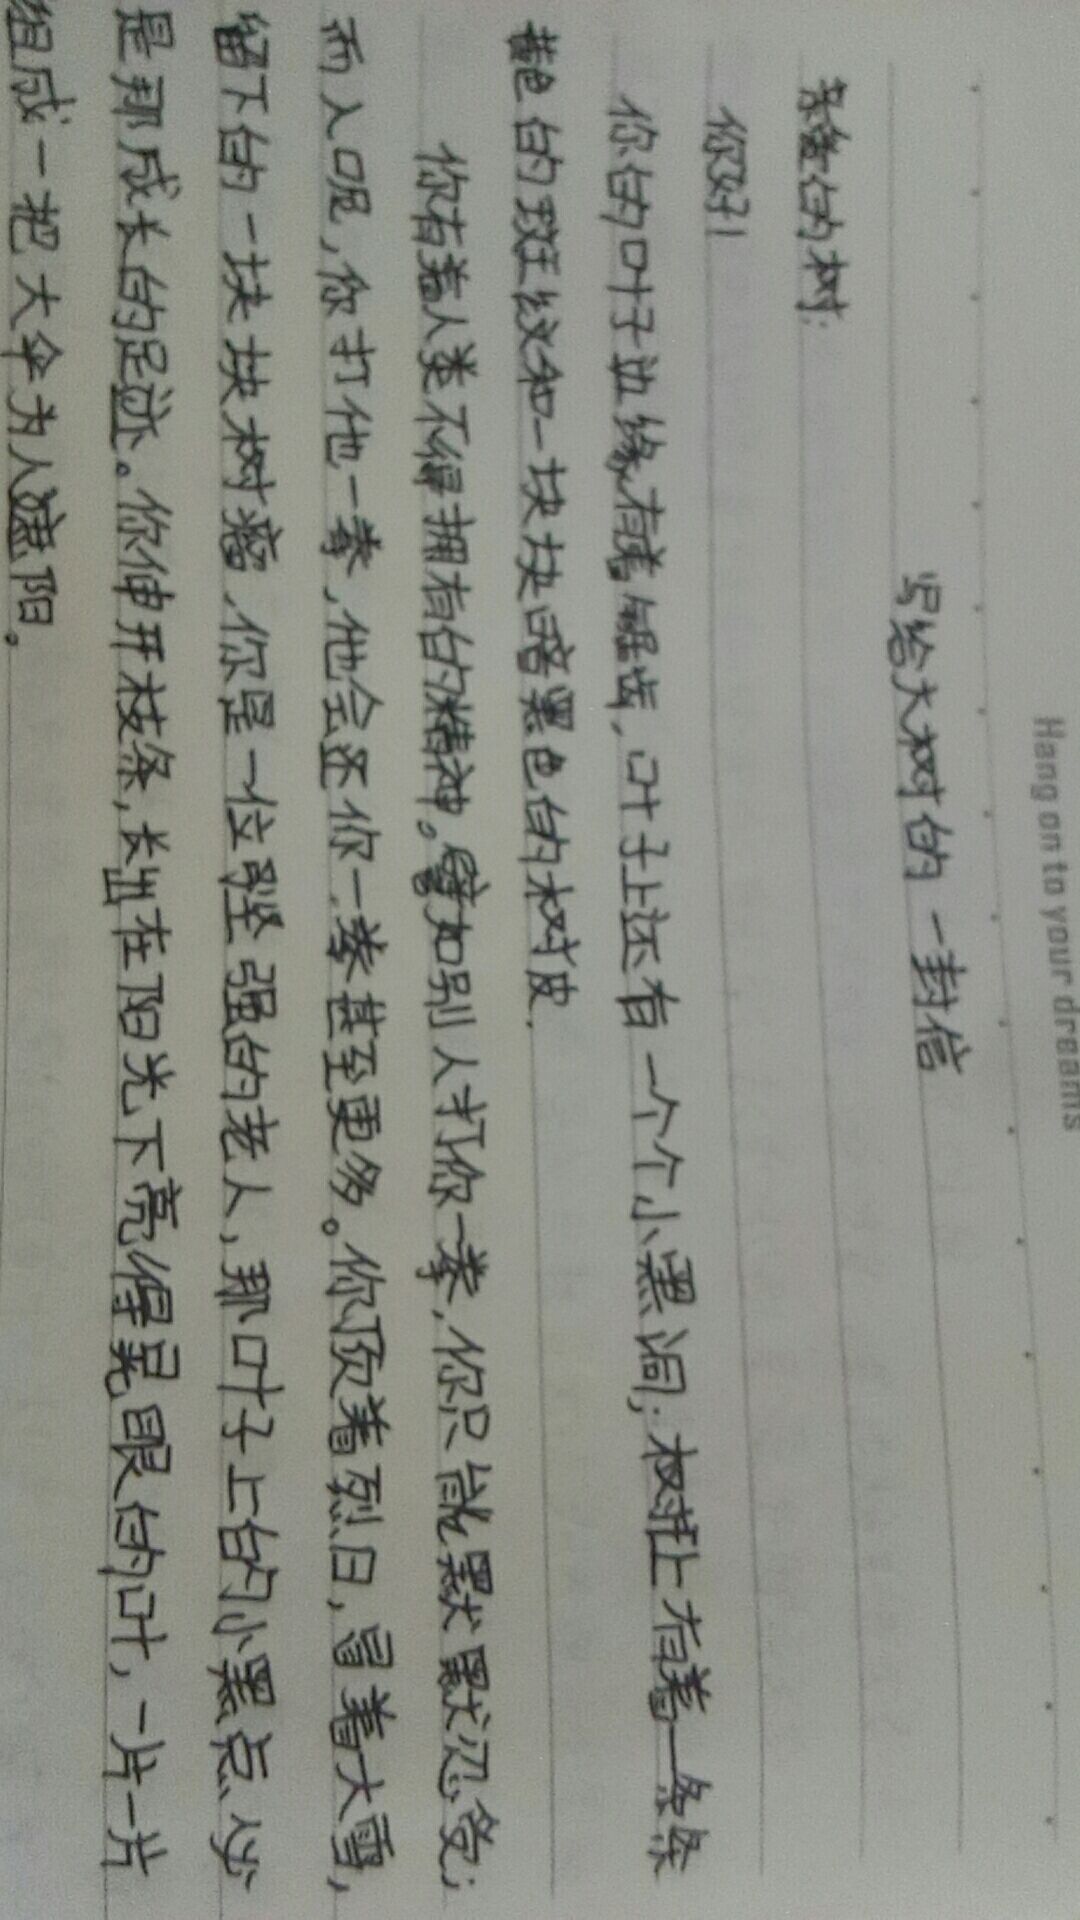 Hang on to your dreams
写给大树的一封信
亲爱的树:
你好!
你的叶子边缘有着锯齿,叶子上还有一个个小黑洞;树桩上有着一条条
黄色的斑纹和一块块暗黑色的树皮.
你有着人类不得拥有的精神。譬如别人打你一拳,你只能默默忍受;
而人呢,你打他一拳,他会还你一拳甚至更多。你顶着烈日,冒着大雪,
留下的一块块树瘤,你是一位坚强的老人,那叶子上的小黑点必
是那成长的足迹。你伸开枝条,长出在阳光下亮得晃眼的叶,一片一片
组成一把大伞为人遮阳。